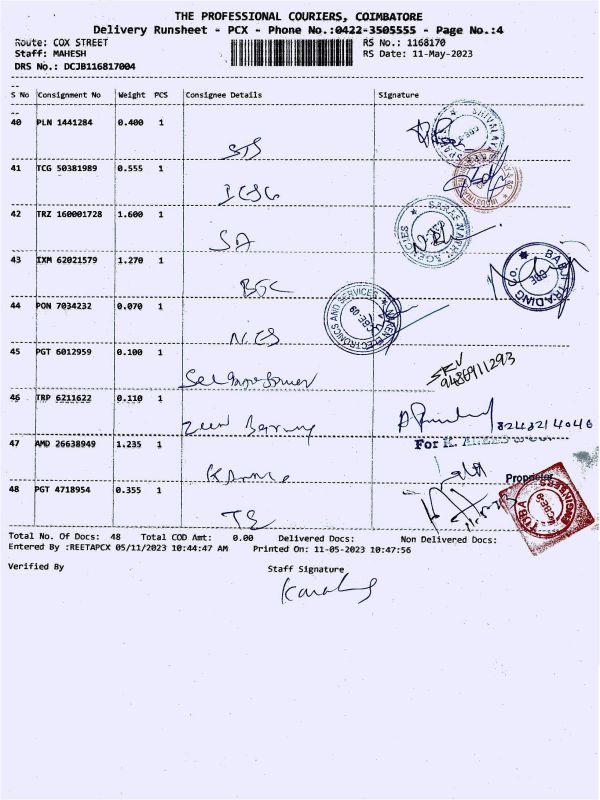 THE PROFESSIONAL COURIERS, COIMBATORE
Delivery Runsheet - PCX - Phone No.:0422-3505555 - Page No.:4
Route: COX STREET RS No.: 1168170
Staff: MAHESH RS Date: 11-May-2023
DRS No.: DCJB116817004
--
S No Consignment No Weight PCS Consignee Details Signature
--
40 PLN 1441284 0.400 1
STS
41 TCG 50381989 0.555 1
42 TRZ 160001728 1.600 1
SA
43 IXM 62021579 1.270 1
BGC
BABJI TRADING Co. CBE
44 PON 7034232 0.070 1
NCS
ELECTRONICS AND SERVICES CBE-9
45 PGT 6012959 0.100 1
SRV
9486911293
46 TRP 6211622 0.110 1
8248214046
47 AMD 26638949 1.235 1
For K.
Proprietor
48 PGT 4718954 0.355 1
TE
ENGINEERS
Total No. Of Docs: 48 Total COD Amt: 0.00 Delivered Docs: Non Delivered Docs:
Entered By :REETAPCX 05/11/2023 10:44:47 AM Printed On: 11-05-2023 10:47:56
Verified By Staff Signature